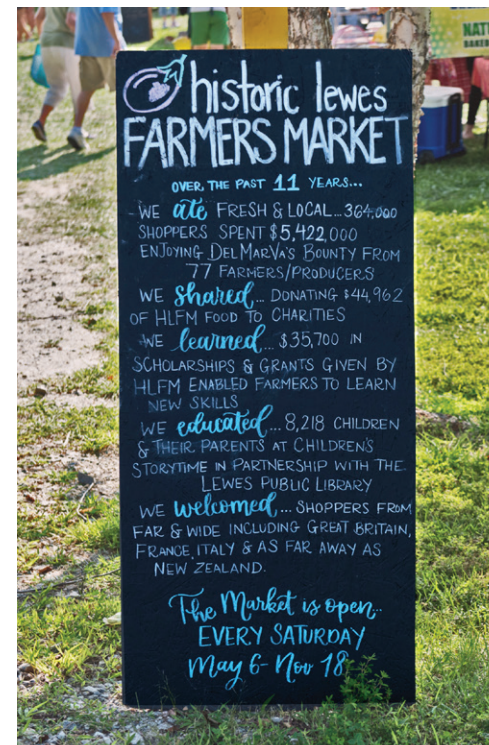 historic lewes
FARMERS MARKET
OVER THE PAST 11 YEARS...
WE ate FRESH & LOCAL...364,000
SHOPPERS SPENT $5,422,000
ENJOYING DELMARVA'S BOUNTY FROM
77 FARMERS/PRODUCERS
WE shared... DONATING $44,962
OF HLFM FOOD TO CHARITIES
WE learned... $35,700 IN
SCHOLARSHIPS & GRANTS GIVEN BY
HLFM ENABLED FARMERS TO LEARN
NEW SKILLS
WE educated... 8,218 CHILDREN
& THEIR PARENTS AT CHILDREN'S
STORYTIME IN PARTNERSHIP WITH THE
LEWES PUBLIC LIBRARY
WE welcomed... SHOPPERS FROM
FAR & WIDE INCLUDING GREAT BRITAIN,
FRANCE, ITALY & AS FAR AWAY AS
NEW ZEALAND.
The Market is open...
EVERY SATURDAY
May 6-Nov 18